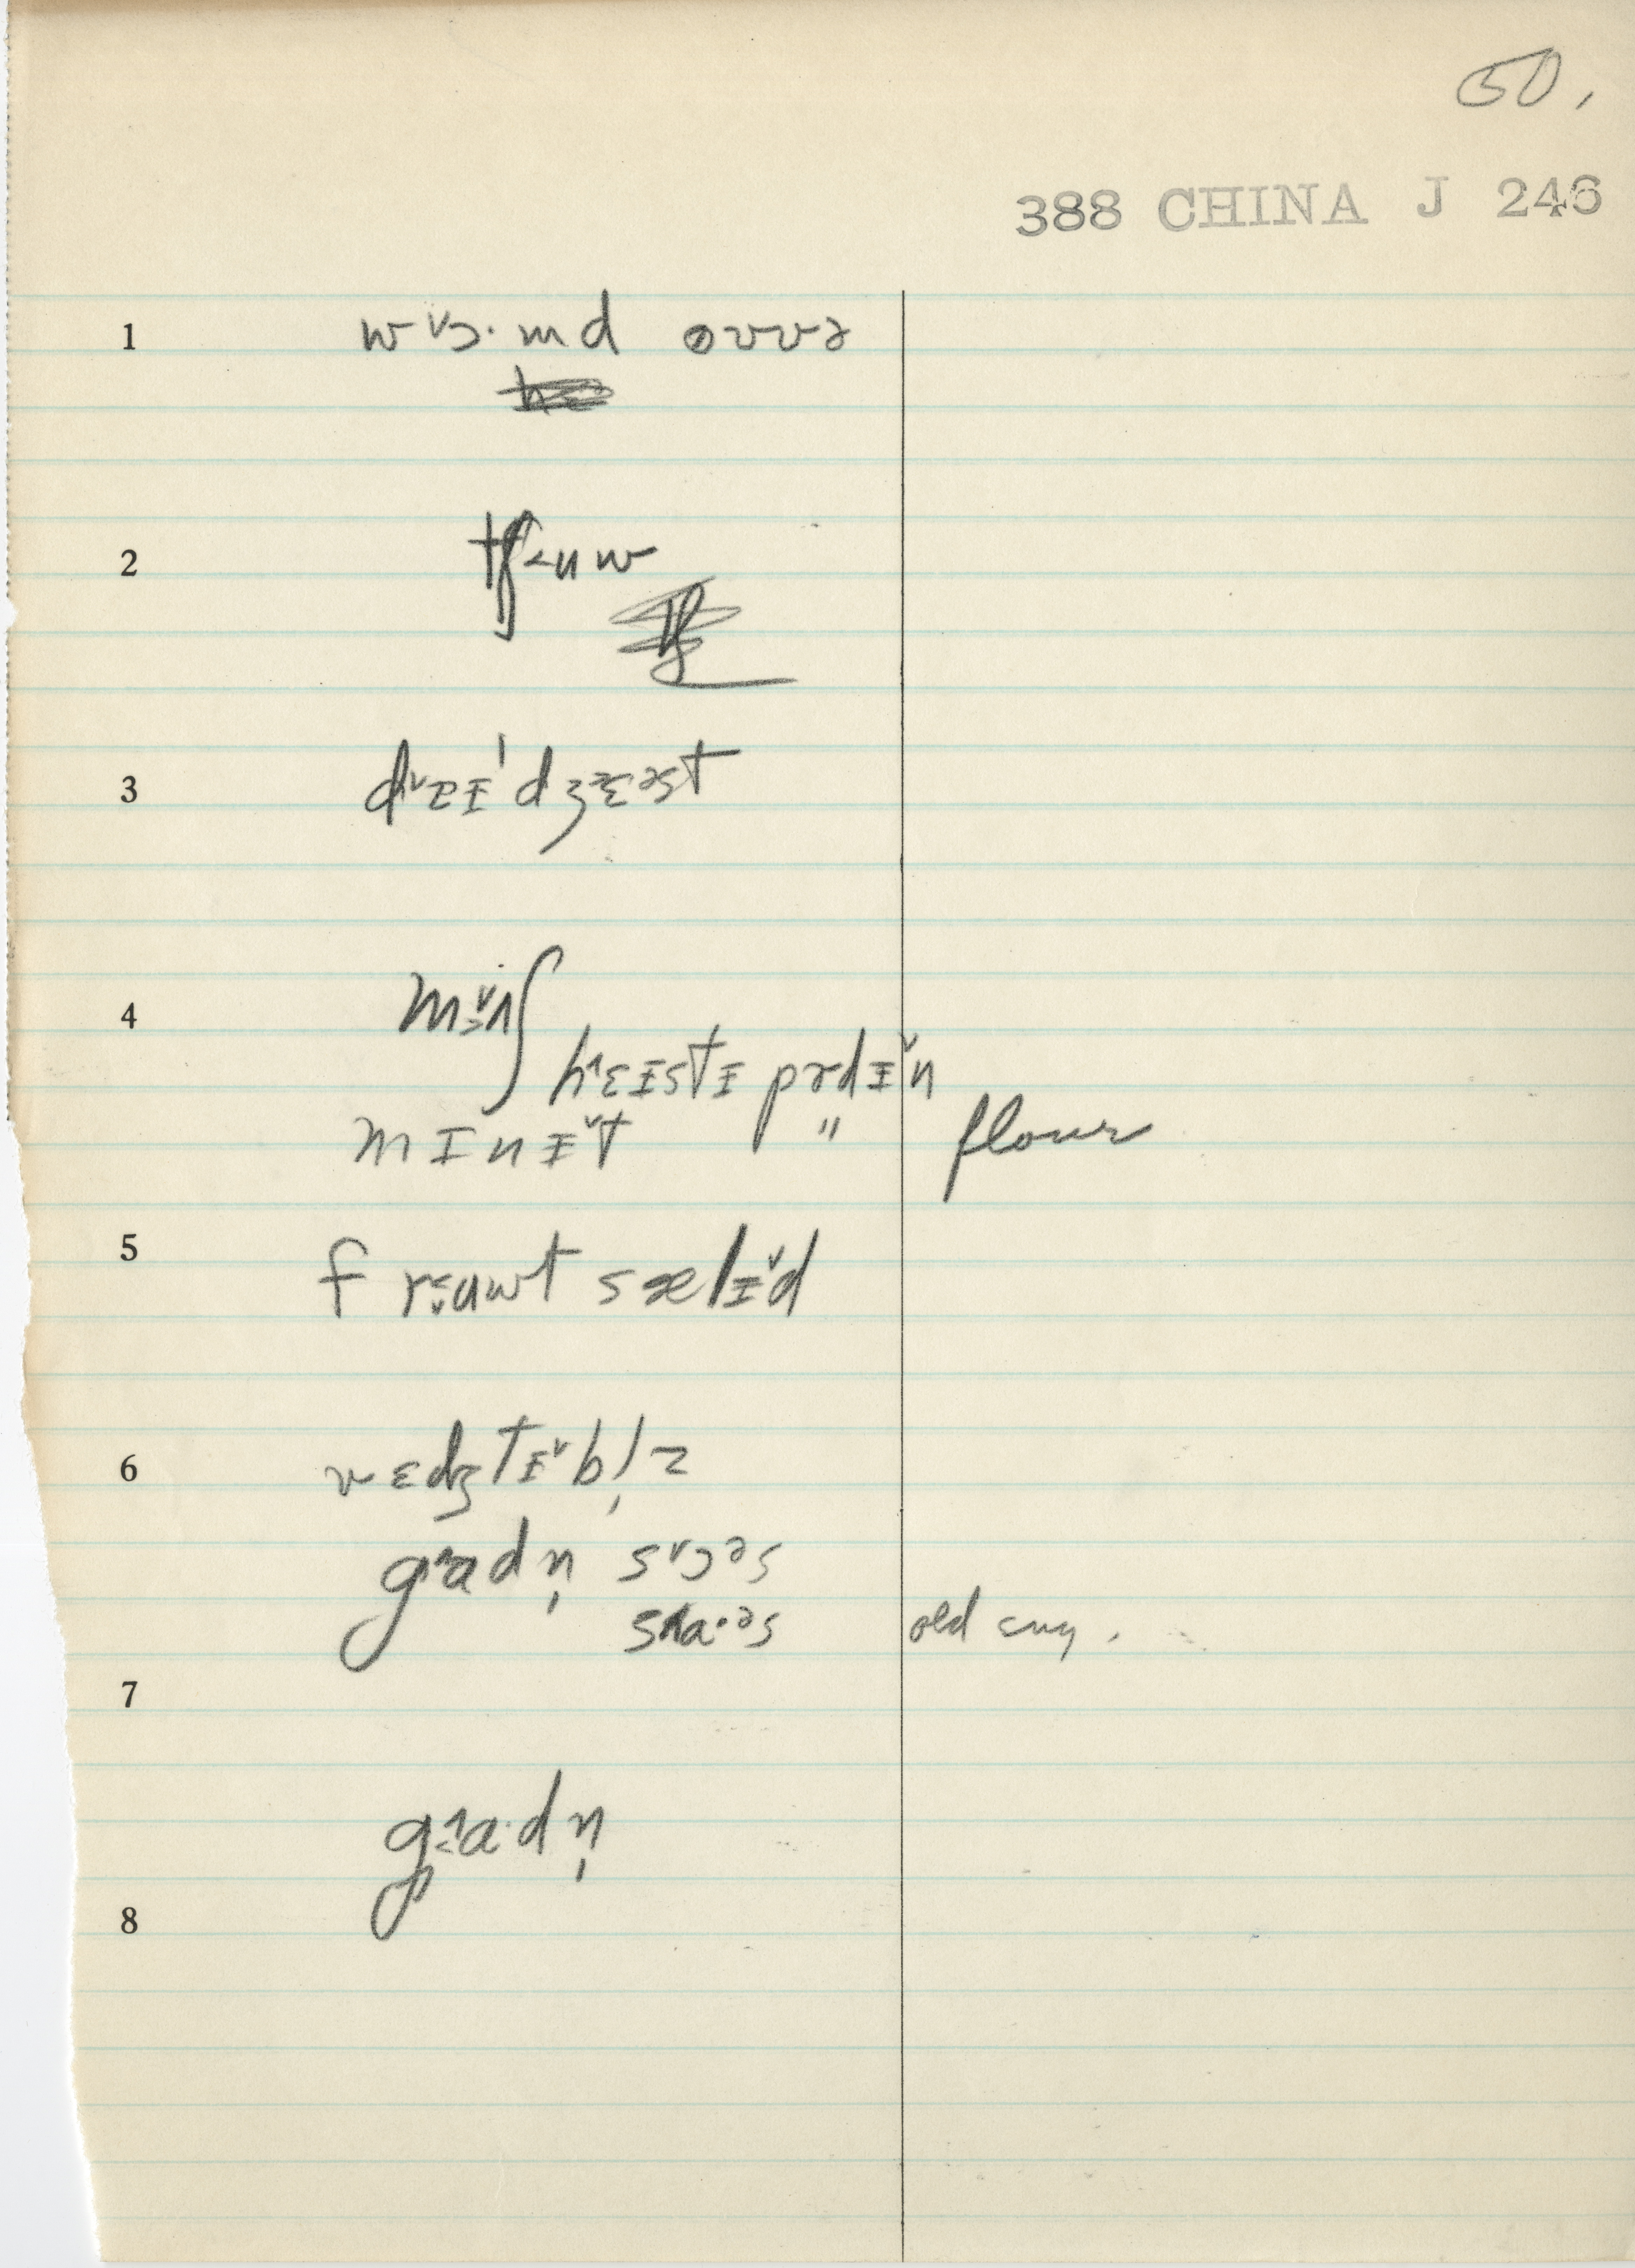 50,
388 CHINA J 246
1 w˅ɔ·md ovvə
2 tʃ˂ʉw
3 d˅ɐɪ'dʒɛəst
4 m˅ʌʃ
h˄ɛɪstɪ pʊdɪ˅n
mɪnɪ˅t " flour
5 frʉwt sælɪ˅d
6 vɛdʒtɪ˅bl̩z
g˄adn̩ s˅ɔəs
s˄a·əs old eng.
7
g˄a·dn̩
8